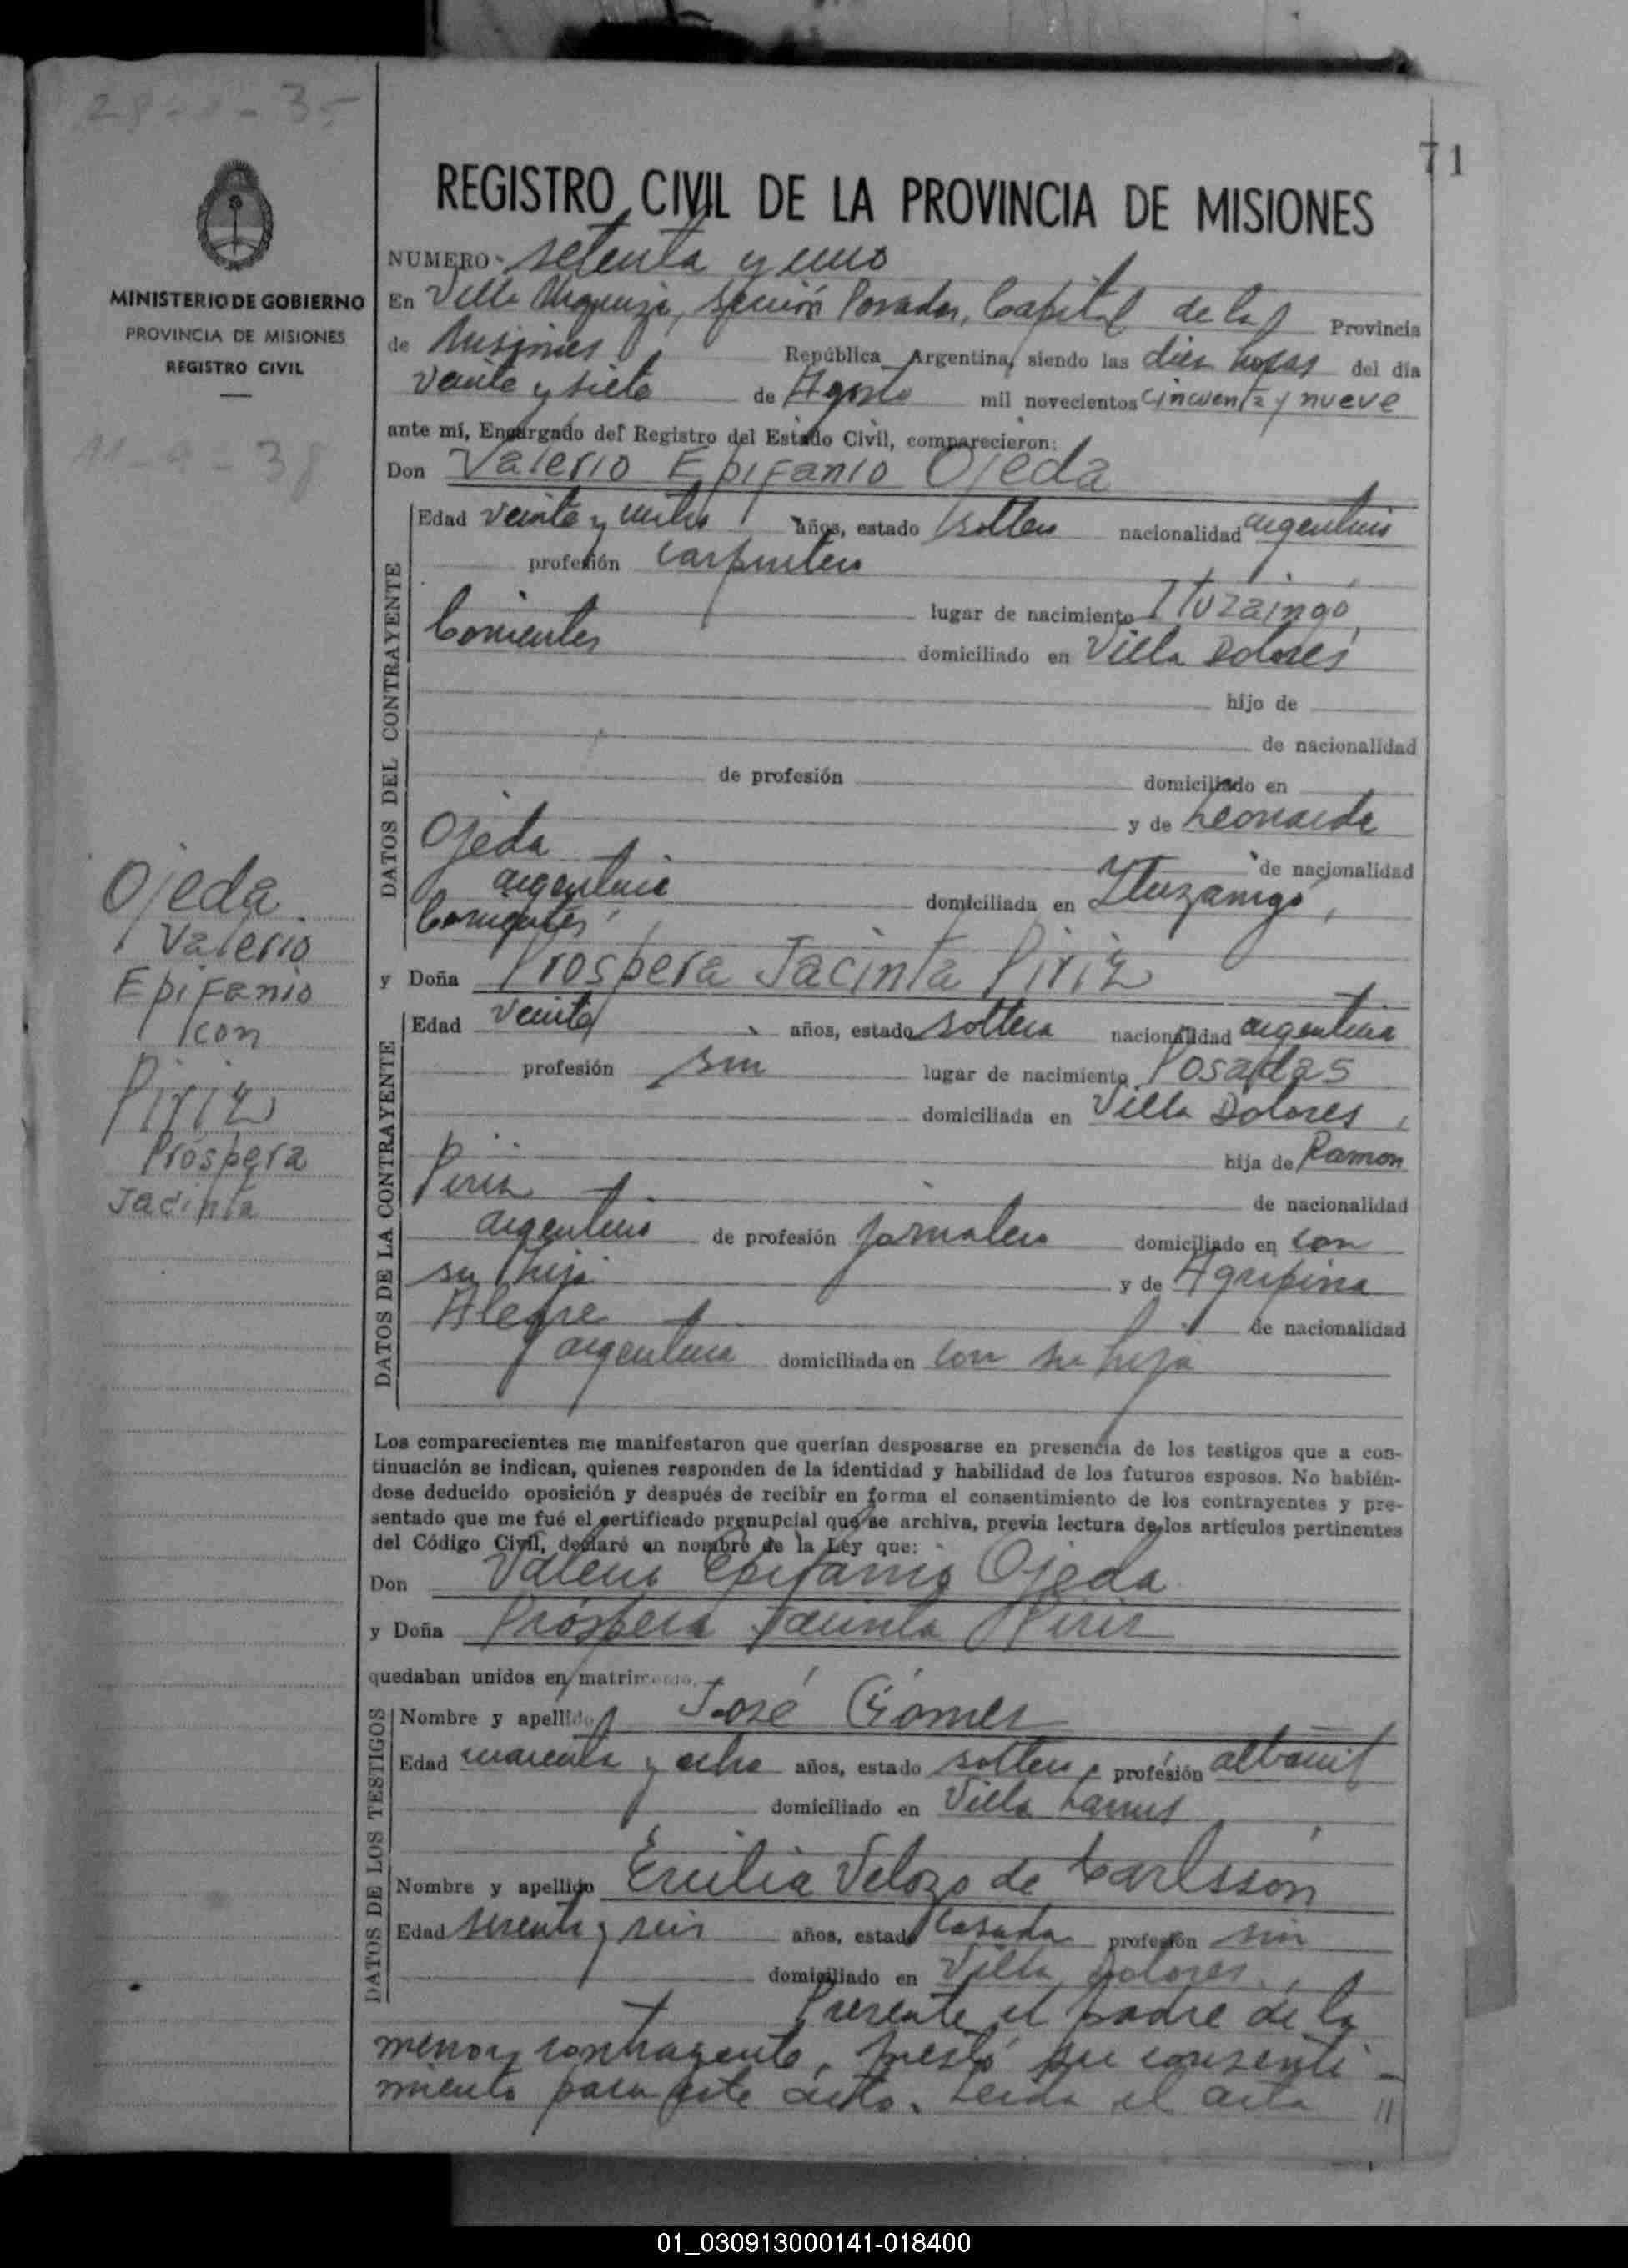 28-1-35
71
REGISTRO CIVIL DE LA PROVINCIA DE MISIONES
MINISTERIO DE GOBIERNO
PROVINCIA DE MISIONES
REGISTRO CIVIL
11-9-38
NUMERO setenta y uno
En Villa Urquiza, Sección Posadas, Capital de la Provincia
de Misiones República Argentina, siendo las diez horas del día
veinte y siete de Agosto mil novecientos cincuenta y nueve
ante mí, Encargado del Registro del Estado Civil, comparecieron:
Don Valerio Epifanio Ojeda
DATOS DEL CONTRAYENTE
Edad veinte y años, estado soltero nacionalidad argentino
profesión carpintero
lugar de nacimiento Ituzaingó,
Corrientes domiciliado en Villa Dolores
hijo de
de nacionalidad
de profesión domiciliado en
y de Leonarda
Ojeda de nacionalidad
argentina domiciliada en Ituzaingó,
Corrientes
y Doña Prospera Jacinta Piriz
DATOS DE LA CONTRAYENTE
Edad veinte años, estado soltera nacionalidad argentina
profesión sin lugar de nacimiento Posadas
domiciliada en Villa Dolores,
hija de Ramon
Piriz de nacionalidad
argentino de profesión jornalero domiciliado en con
su hija y de Agripina
Alegre de nacionalidad
argentina domiciliada en con su hija
Los comparecientes me manifestaron que querían desposarse en presencia de los testigos que a con-
tinuación se indican, quienes responden de la identidad y habilidad de los futuros esposos. No habién-
dose deducido oposición y después de recibir en forma el consentimiento de los contrayentes y pre-
sentado que me fué el certificado prenupcial que se archiva, previa lectura de los artículos pertinentes
del Código Civil, declaré en nombre de la Ley que:
Don Valerio Epifanio Ojeda
y Doña Próspera Jacinta Piriz
quedaban unidos en matrimonio.
DATOS DE LOS TESTIGOS
Nombre y apellido José Gómez
Edad cuarenta y ocho años, estado soltero profesión albañil
domiciliado en Villa Lanus
Nombre y apellido Ercilia Velozo de Carlsson
Edad sesenta y seis años, estado casada profesión sin
domiciliado en Villa Dolores,
Presente el padre de la
menor contrayente, prestó su consenti-
miento para este acto. Leida el acta //
Ojeda
Valerio
Epifanio
con
Piriz
Próspera
Jacinta
01_030913000141-018400